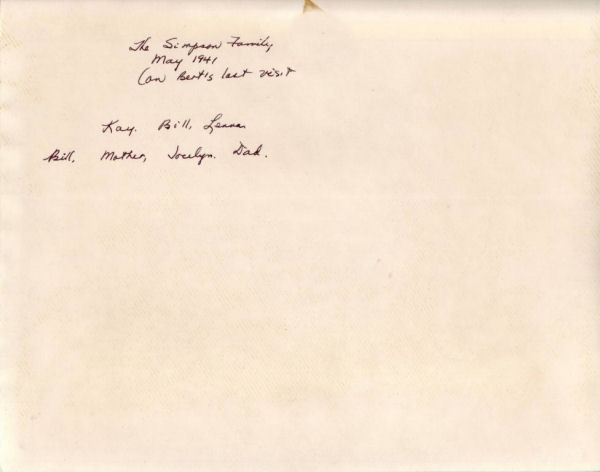 The Simpson Family
May 1941
(on Bert's last visit
Kay. Bill, Lenna
Bill, Mother, Jocelyn. Dad.